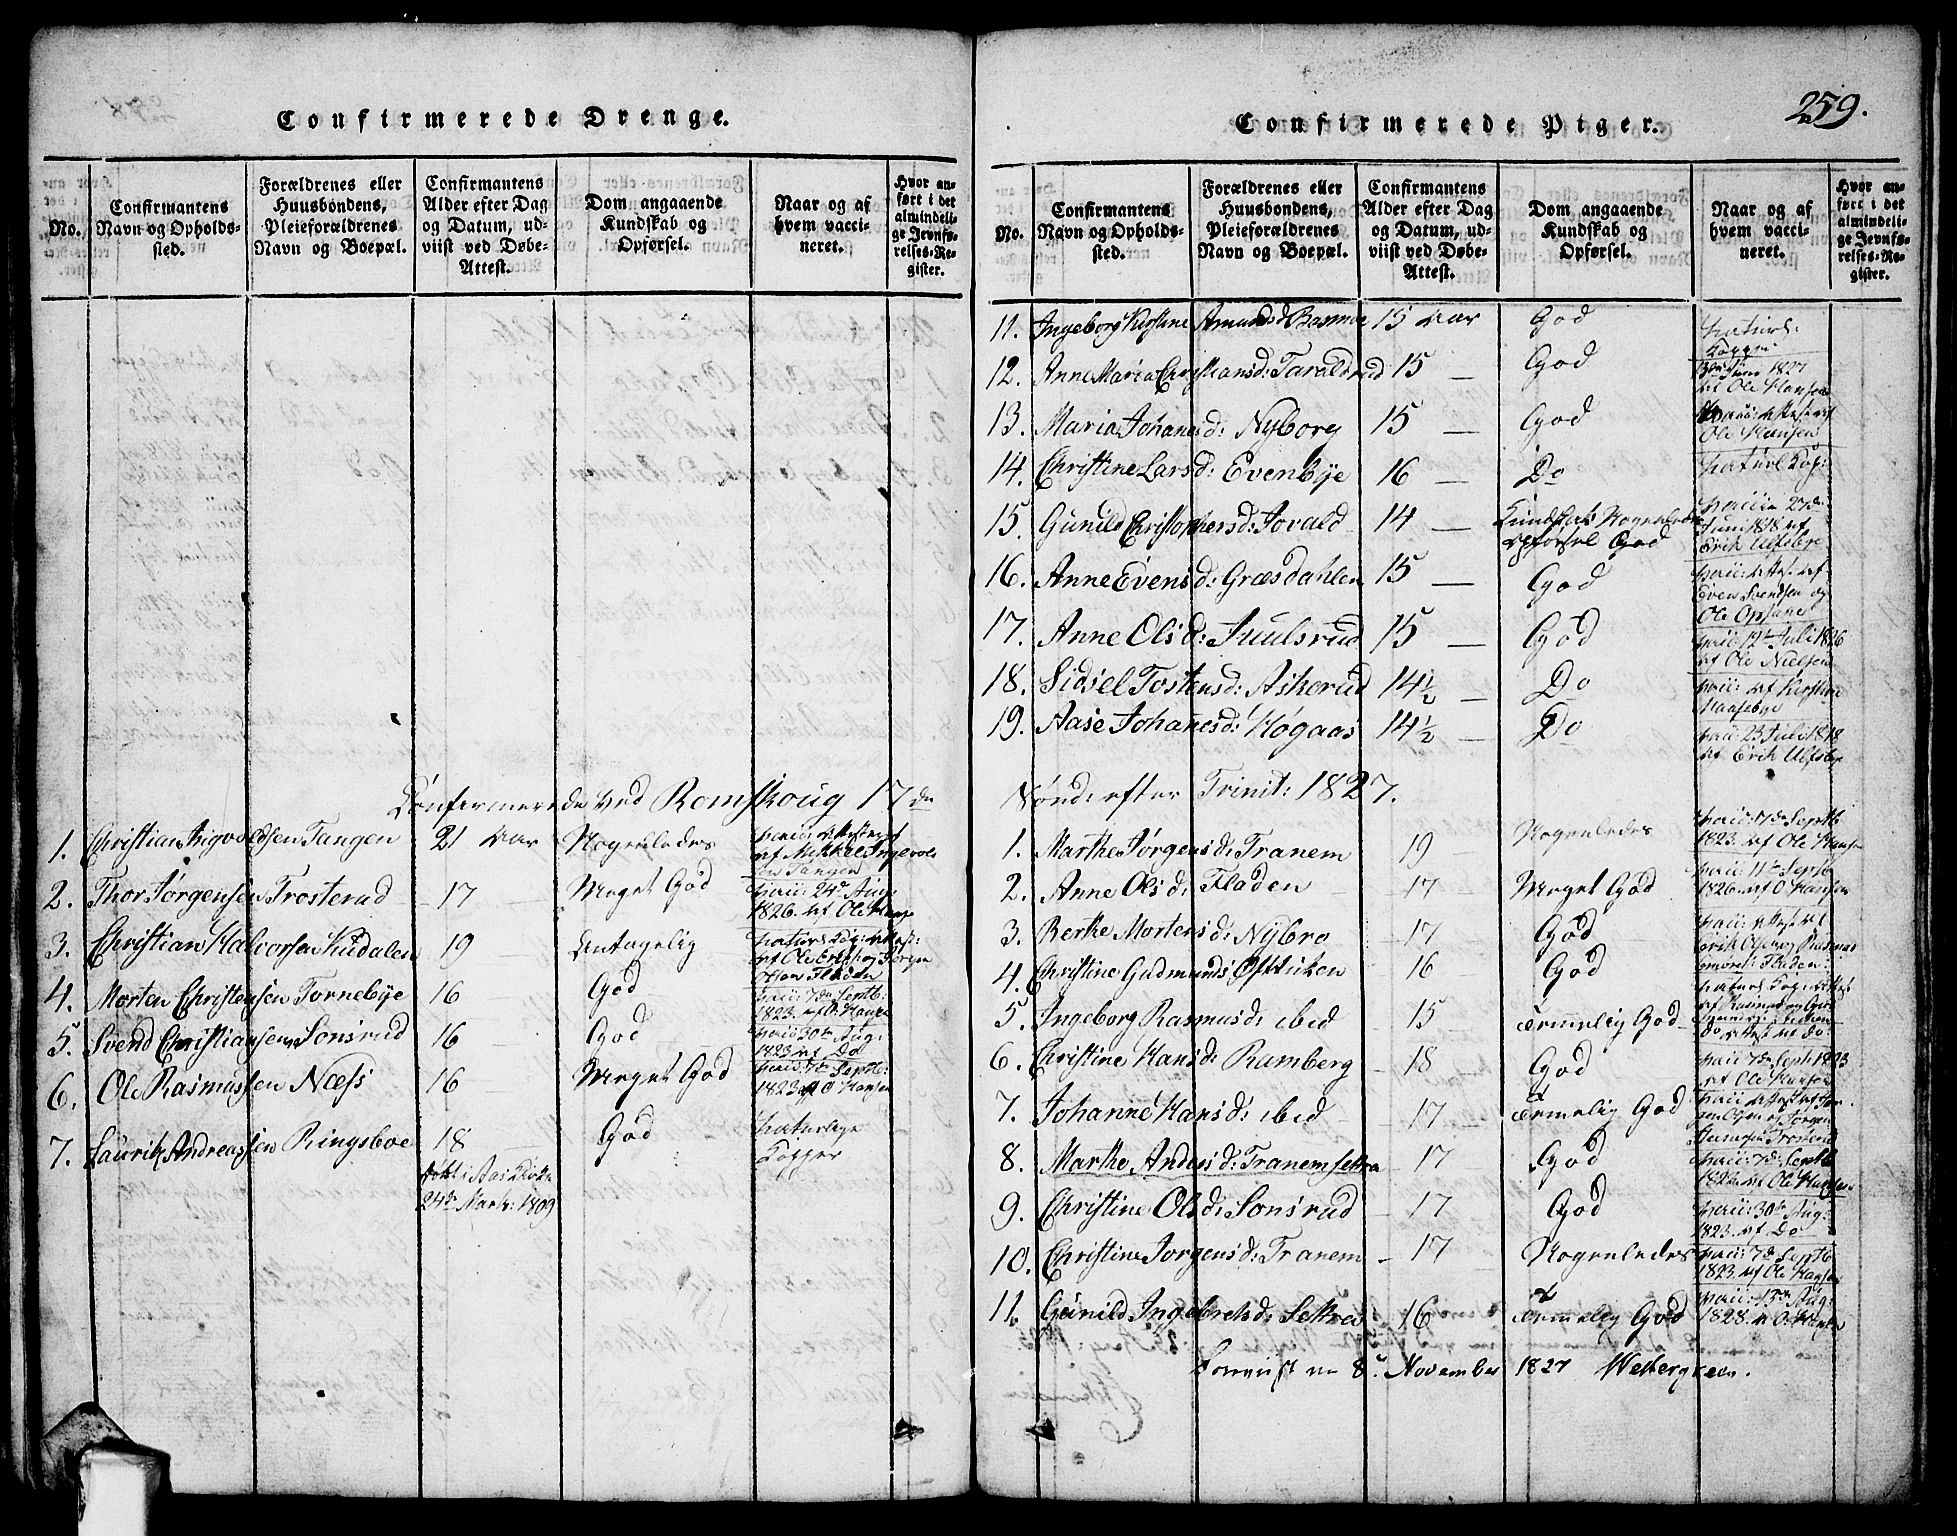 Confirmerede Drenge.
No.
Confirmantens Navn og Opholdssted.
Forældrenes eller Huusbondens, Pleieforældrenes Navn og Boepæl.
Confirmantens Alder efter Dag og Datum, udviist ved Døbe-Attest.
Dom angaaende Kundskab og Opførsel.
Naar og af hvem vaccineret.
Hvor anført i det almindelige Jevnførelses-Register.
Confirmerede ved Romskoug 17de
1. Christian Ingvoldsen Tangen 21 Aar Nogenledes
2. Thor Jørgensen Trosterud 17 Meget God vacc: 24de Aug: 1826 af Ole Hanse
3. Christian Halvorsen Kudalen 19
4. Morten Christensen Tornebye 16 God vacc: 7de Septb: 1823 af O. Hansen
5. Svend Christiansen Sonsrud 16 God vacc: 30te Aug: 1823 af Do
6. Ole Rasmussen Næss 16 Meget God vacc: 7de Septb: 1823 af O Hansen
7. Laurits Andreassen Ringsboe 18 God naturlige Kopper
24de Marts: 1809
Confirmerede Piger.
259.
No.
Confirmantens Navn og Opholdssted.
Forældrenes eller Huusbondens, Pleieforældrenes Navn og Boepæl.
Confirmantens Alder efter Dag og Datum, udviist ved Døbe-Attest.
Dom angaaende Kundskab og Opførsel.
Naar og af hvem vaccineret.
Hvor anført i det almindelige Jevnførelses-Register.
11. Ingeborg Kirstine Amunds d Basmoe 15 Aar God naturl: Kopper
12. Anne Maria Christians d: Taraldrud 15 God 1827 af Ole Hansen
13. Maria Johanes d: Nyborg 15 God Ole Hansen
14. Christine Lars d: Evenbye 16 Do naturl Kop:
15. Gunild Christophers d: Jovald 14 Kundskab Nogenledes opførsel God vacc: 27de Juni 1818 af Erik Ulfsbye
16. Anne Evens d: Græsdahlen 15 God vacc: Attest af Even Svendsen og Ole Opsane
17. Anne Ols d: Juulsrud 15 God vacc: 12te Juli 1826 af Ole Nielsen
18. Sidsel Tostens d: Askerud 14½ Do vacc: af Kirstine Haasebye
19. Aase Johanes d: Høgaas 14½ Do vacc: 23 Juli 1818 af Erik Ulfsbye
Sønd: efter Trinit: 1827.
1. Marthe Jørgens d: Tranem 19 Nogenledes vacc: 7de Septb 1823 af Ole Hansen
2. Anne Ols d: Fladen 17 Meget God vacc: 11te Septb 1826 af O. Hansen
3. Berthe Mortens d: Nybro 17 God
4. Christine Gudmunds 16 God
5. Ingeborg Rasmus d: ibid 15 temmelig God
6. Christine Hans d: Ramberg 18 God vacc: 7de Septb 1823 af Ole Hansen
7. Johanne Hans d: ibid 17 temmelig God
8. Marthe Anders d: Tranemsettra 17 God vacc: 7de Septb 1823 af Ole Hansen
9. Christine Ols d: Sonsrud 17 God vacc: 30te Aug: 1823 af Do
10. Christine Jørgens d: Tranem 17 Nogenledes vacc: 7de Septb 1823 af Ole Hansen
11. Gunild Ingebrets d: Settra 16 temmelig God vacc: 13de Aug: 1828 af O. Hansen
8de November 1827 Westergreen.